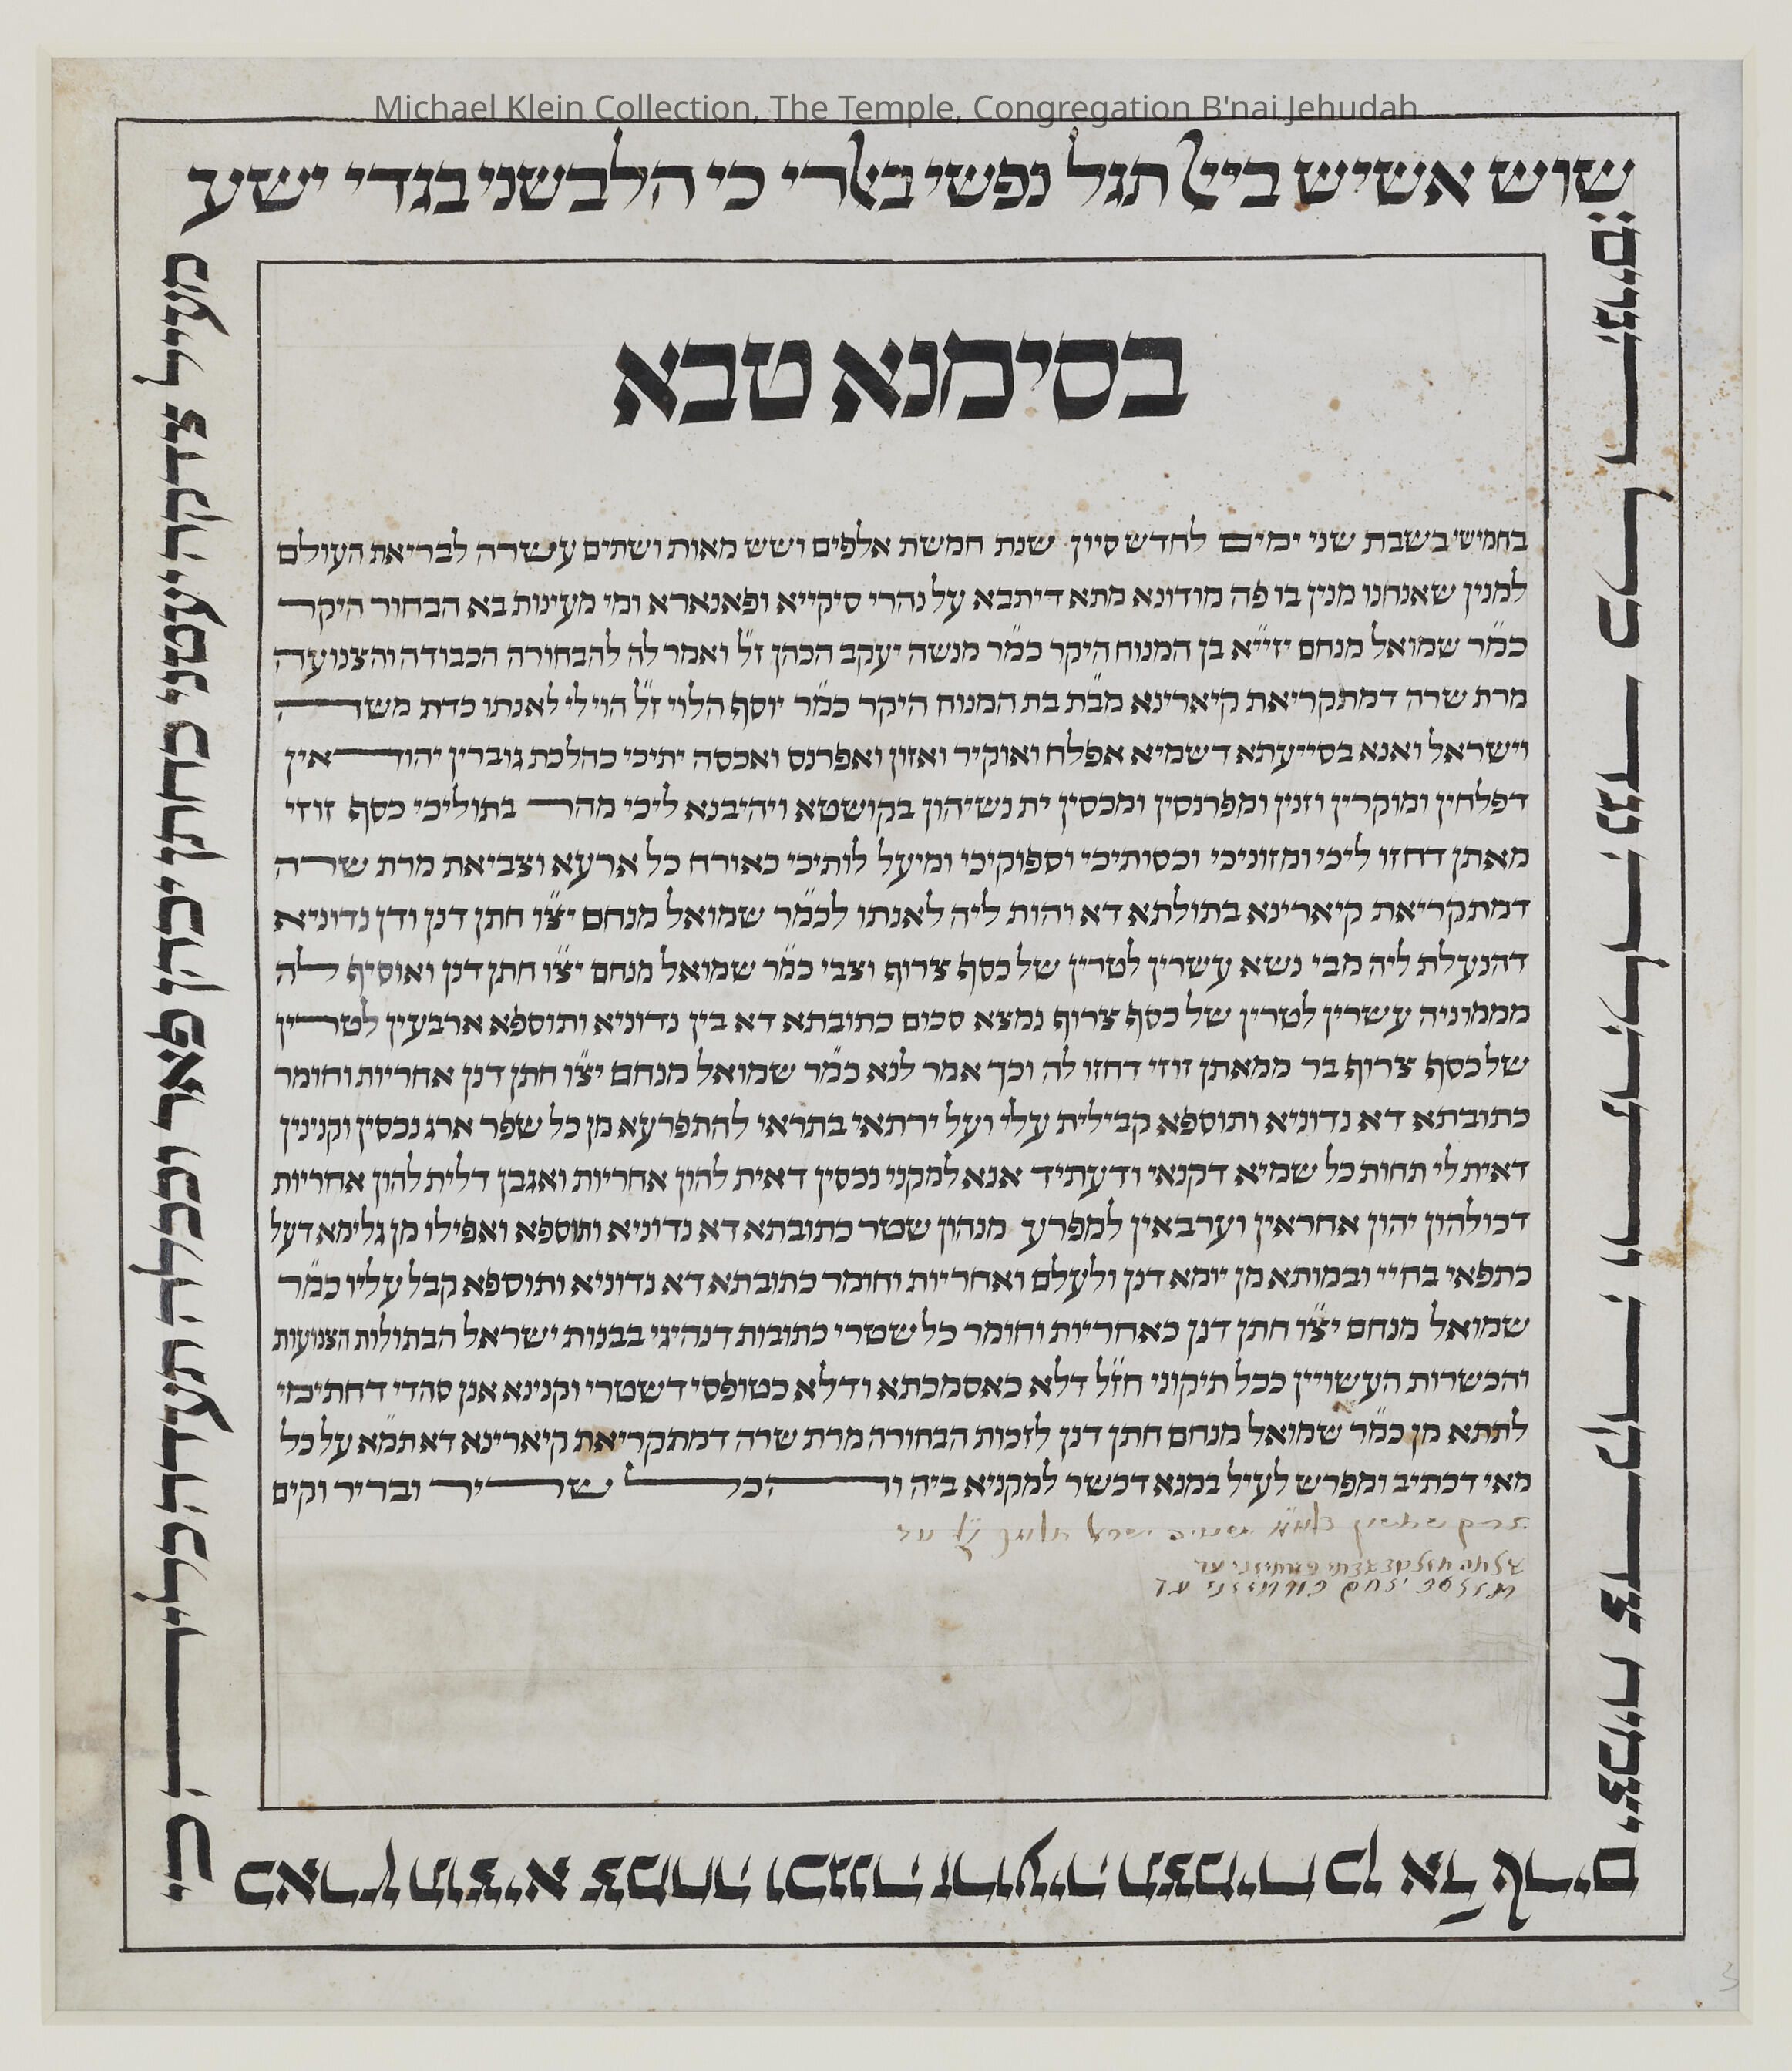 Michael Klein Collection, The Temple, Congregation B'nai Jehudah
שוש אשיש ביי תגל נפשי באלרי כי הלבשני בגדי ישע
מעיל צדקה יעטני כחתן יכהן פאר וככלה תעדה כליה כי
כארץ תוציא צמחה וכגנה זרועיה תצמיח כן אד' אלרים
יצמיח צדקה ותהלה נגד כל הגוים:
בסימנא טבא
בחמישי בשבת שני ימים לחדש סיון שנת חמשת אלפים ושש מאות ושתים עשרה לבריאת העולם
למנין שאנחנו מנין בו פה מודונא מתא דיתבא על נהרי סיקייא ופאנארא ומי מעינות בא הבחור היקר
כמ"ר שמואל מנחם יזי"א בן המנוח היקר כמ"ר מנשה יעקב הכהן ז"ל ואמר לה להבחורה הכבודה והצנועה
מרת שרה דמתקריאת קיארינא מב"ת בת המנוח היקר כמ"ר יוסף הלוי ז"ל הוי לי לאנתו כדת משה
וישראל ואנא בסייעתא דשמיא אפלח ואוקיר ואזון ואפרנס ואכסה יתיכי כהלכת גוברין יהודאין
דפלחין ומוקרין וזנין ומפרנסין ומכסין ית נשיהון בקושטא ויהיבנא ליכי מהר בתוליכי כסף זוזי
מאתן דחזו ליכי ומזוניכי וכסותיכי וספוקיכי ומיעל לותיכי כאורח כל ארעא וצביאת מרת שרה
דמתקריאת קיארינא בתולתא דא והות ליה לאנתו לכמ"ר שמואל מנחם יצ"ו חתן דנן ודן נדוניא
דהנעלת ליה מבי נשא עשרין לטרין של כסף צרוף וצבי כמ"ר שמואל מנחם יצ"ו חתן דנן ואוסיף לה
ממוניה עשרין לטרין של כסף צרוף נמצא סכום כתובתא דא בין נדוניא ותוספא ארבעין לטרין
של כסף צרוף בר ממאתן זוזי דחזו לה וכך אמר לנא כמ"ר שמואל מנחם יצ"ו חתן דנן אחריות וחומר
כתובתא דא נדוניא ותוספא קבילית עלי ועל ירתאי בתראי להתפרעא מן כל שפר ארג נכסין וקנינין
דאית לי תחות כל שמיא דקנאי ודעתיד אנא למקני נכסין דאית להון אחריות ואגבן דלית להון אחריות
דכולהון יהון אחראין וערבאין למפרע מנהון שטר כתובתא דא נדוניא ותוספא ואפילו מן גלימא דעל
כתפאי בחיי ובמותא מן יומא דנן ולעלם ואחריות וחומר כתובתא דא נדוניא ותוספא קבל עליו כמ"ר
שמואל מנחם יצ"ו חתן דנן כאחריות וחומר כל שטרי כתובות דנהיגי בבנות ישראל הבתולות הצנועות
והכשרות העשויין ככל תיקוני חז"ל דלא כאסמכתא ודלא כטופסי דשטרי וקנינא אנן סהדי דחתימי
לתתא מן כמ"ר שמואל מנחם חתן דנן לזכות הבחורה מרת שרה דמתקריאת קיארינא דא תמ"א על כל
מאי דכתיב ומפרש לעיל במנא דכשר למקניא ביה והכל שריר ובריר וקים